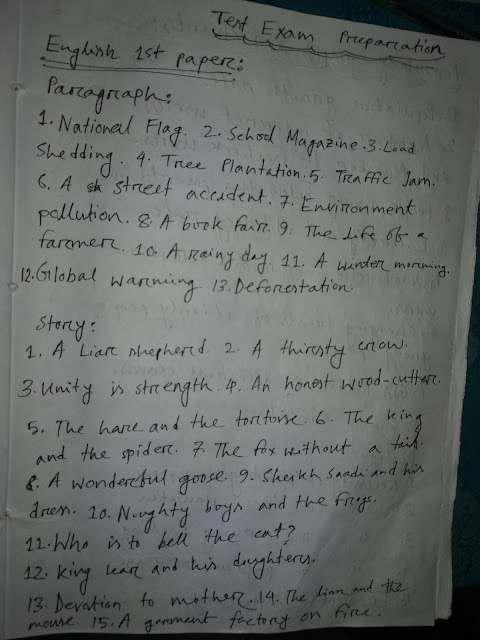 Test Exam Preparation
English 1st paper:
Paragraph:
1. National Flag. 2. School Magazine. 3. Load
Shedding. 4. Tree Plantation. 5. Traffic Jam.
6. A street accident. 7. Environment
pollution. 8. A book fair. 9. The life of a
farmer. 10. A rainy day 11. A winter morning.
12. Global warming 13. Deforestation
Story:
1. A Liar shepherd 2. A thirsty crow.
3. Unity is strength. 4. An honest wood-cutter.
5. The hare and the tortoise. 6. The king
and the spider. 7. The fox without a tail.
8. A wonderful goose. 9. Sheikh Saadi and his
dress. 10. Noughty boys and the frogs.
11. Who is to bell the cat?
12. King lear and his daughters.
13. Devotion to mother. 14. The lion and the
mouse 15. A garment factory on fire.